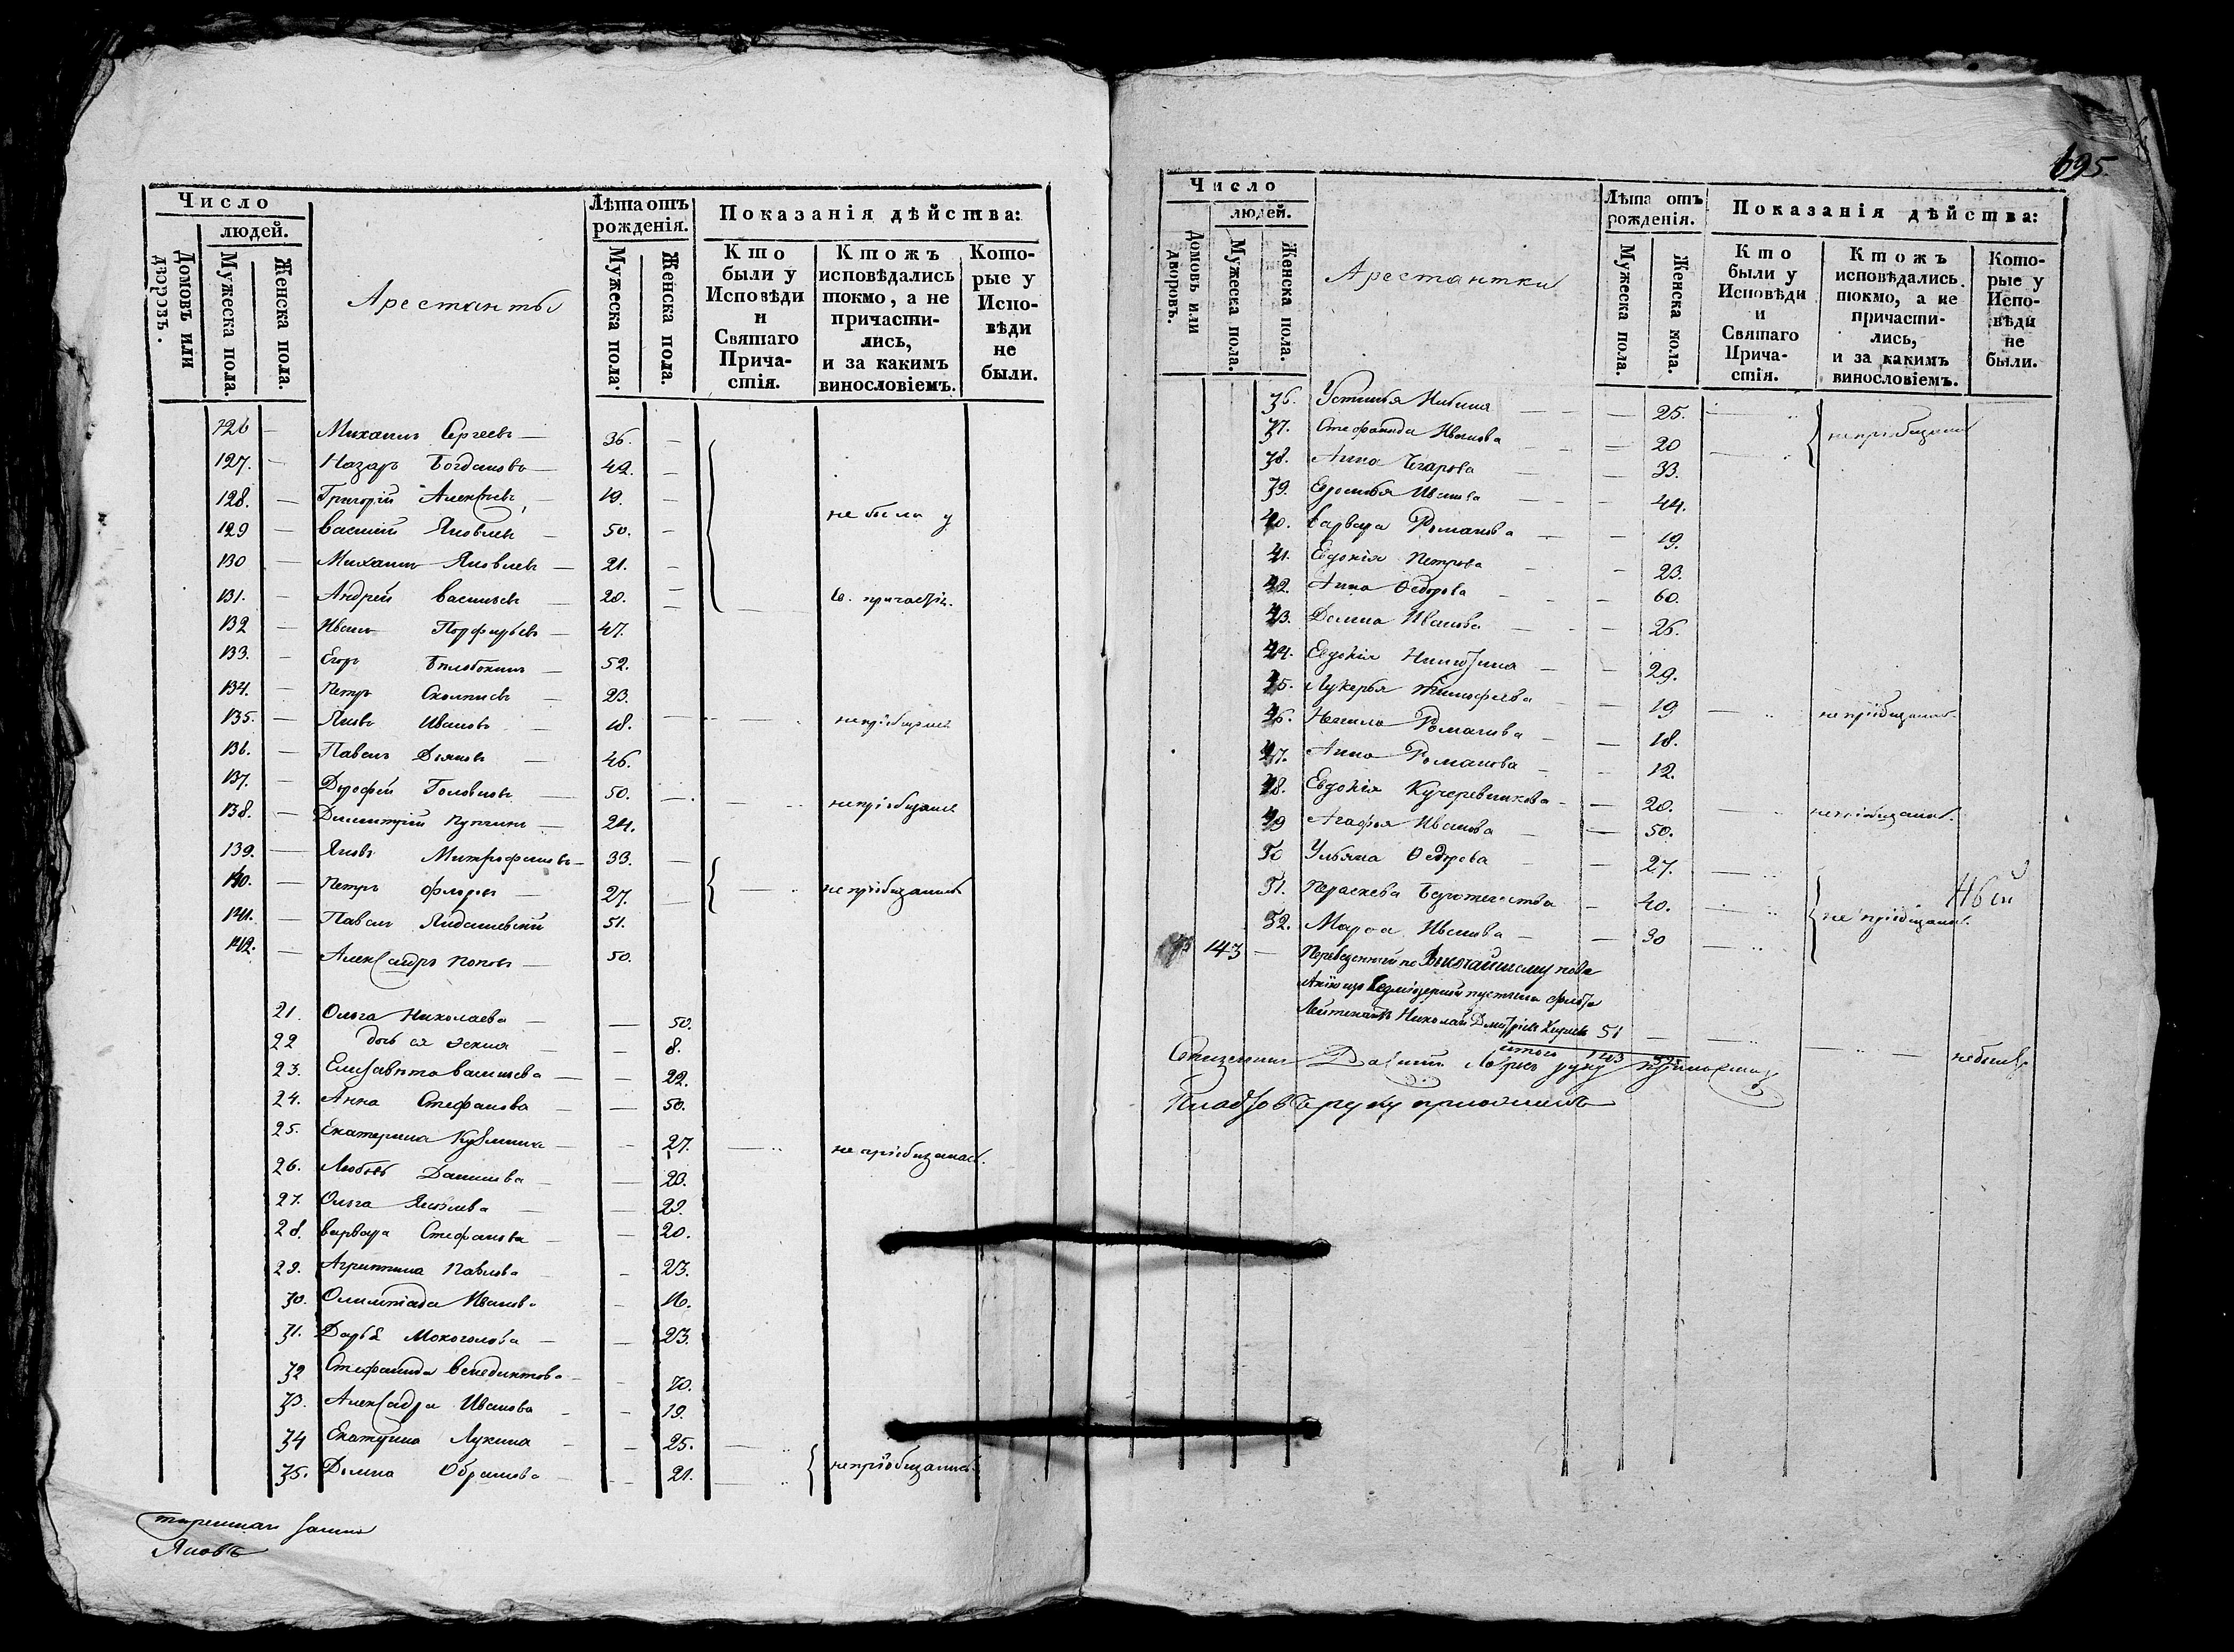 Число
людей.
Домовъ или дворовъ.
Мужеска пола.
Женска пола.
Арестанты
Лѣта отъ рожденія.
Мужеска пола.
Женска пола.
Показанія дѣйства:
Кто были у Исповѣди и Святаго Причастія.
Ктожъ исповѣдались токмо, а не причастились, и за какимъ винословіемъ.
Которые у Исповѣди не были.
126 — Михаилъ Сергеевъ — 36. —
127. — Назаръ Богдановъ — 42. —
128. — Григорій Алексѣевъ — 19. —
не были у
129 — Василій Яковлевъ — 50. —
130 — Михаилъ Яковлевъ — 21. —
131. — Андрей Васильевъ — 20. —
Св. причастія.
132 — Иванъ Порфирьевъ — 47.
133. — Егоръ Бѣлобокинъ — 52.
134. — Петръ — 23.
135. — Яковъ Ивановъ — 18. — непріобщался
136. — Павелъ Дьяковъ — 46.
137. — Дорофей Головковъ — 50. — непріобщался
138. — Димитрій — 24.
139. — Яковъ Митрофановъ — 33. —
140. — Петръ Флоровъ — 27. — не пріобщались
141. — Павелъ 51.
142. — Александръ Поповъ — 50.
21. Ольга Николаева — — 50.
22 дочь ея — — 8.
23. Елисавета Васильева — — 22.
24. Анна Стефанова — — 50.
25. Екатерина Кузмина — — 27. — не пріобщалась.
26. Любовь Данилова — — 20.
27. Ольга Яковлева — — 29.
28. Варвара Стефанова — — 20.
29. Агрипина Павлова — 23.
30. Олимпіада Иванова — 16.
31. Дарья Мокоголова — — 23.
32 Стефанида Венедиктова — — 70.
33. Александра Иванова — — 19.
34 Екатерина Лукина — — 25. —
35. Домна Обрамова — — 21. — непріобщались
Яковъ
695.
Число
людей.
Домовъ или дворовъ.
Мужеска пола.
Женска пола.
Арестантки
Лѣта отъ рожденія.
Мужеска пола.
Женска пола.
Показанія дѣйства:
Кто были у Исповѣди и Святаго Причастія.
Ктожъ исповѣдались токмо, а не причастились, и за какимъ винословіемъ.
Которые у Исповѣди не были.
36. Устинья — — 25. — непріобщались
37. Стефанида Иванова — — 20
38. Анна — — 33.
39. Ефросинья Иванова — — 44.
40. Варвара Романова — — 19.
41. Евдокія Петрова — — 23.
42. Анна Ѳедорова — — 60.
43. Домна Иванова — — 26.
44. Евдокія Никитина — — 29.
45. Лукерья Тимофеева — — 19 — непріобщалась.
46. Ненила Романова — — 18.
47. Анна Романова — — 12.
48. Евдокія Кучеревникова — — 20. — непріобщалась.
49 Агафья Иванова — — 50.
50 Ульяна Ѳедорова — — 27. —
51. Параскева — 40. — не пріобщались.
52. Марѳа Иванова — — 30 —
143 — Переведенный по Высочайшему пове
лѣнію изъ Седміозерной пустыни флота
Лейтенантъ Николай Дмитріевъ 51 — — — небылъ
итого 143 52
руку приложилъ
руку приложилъ